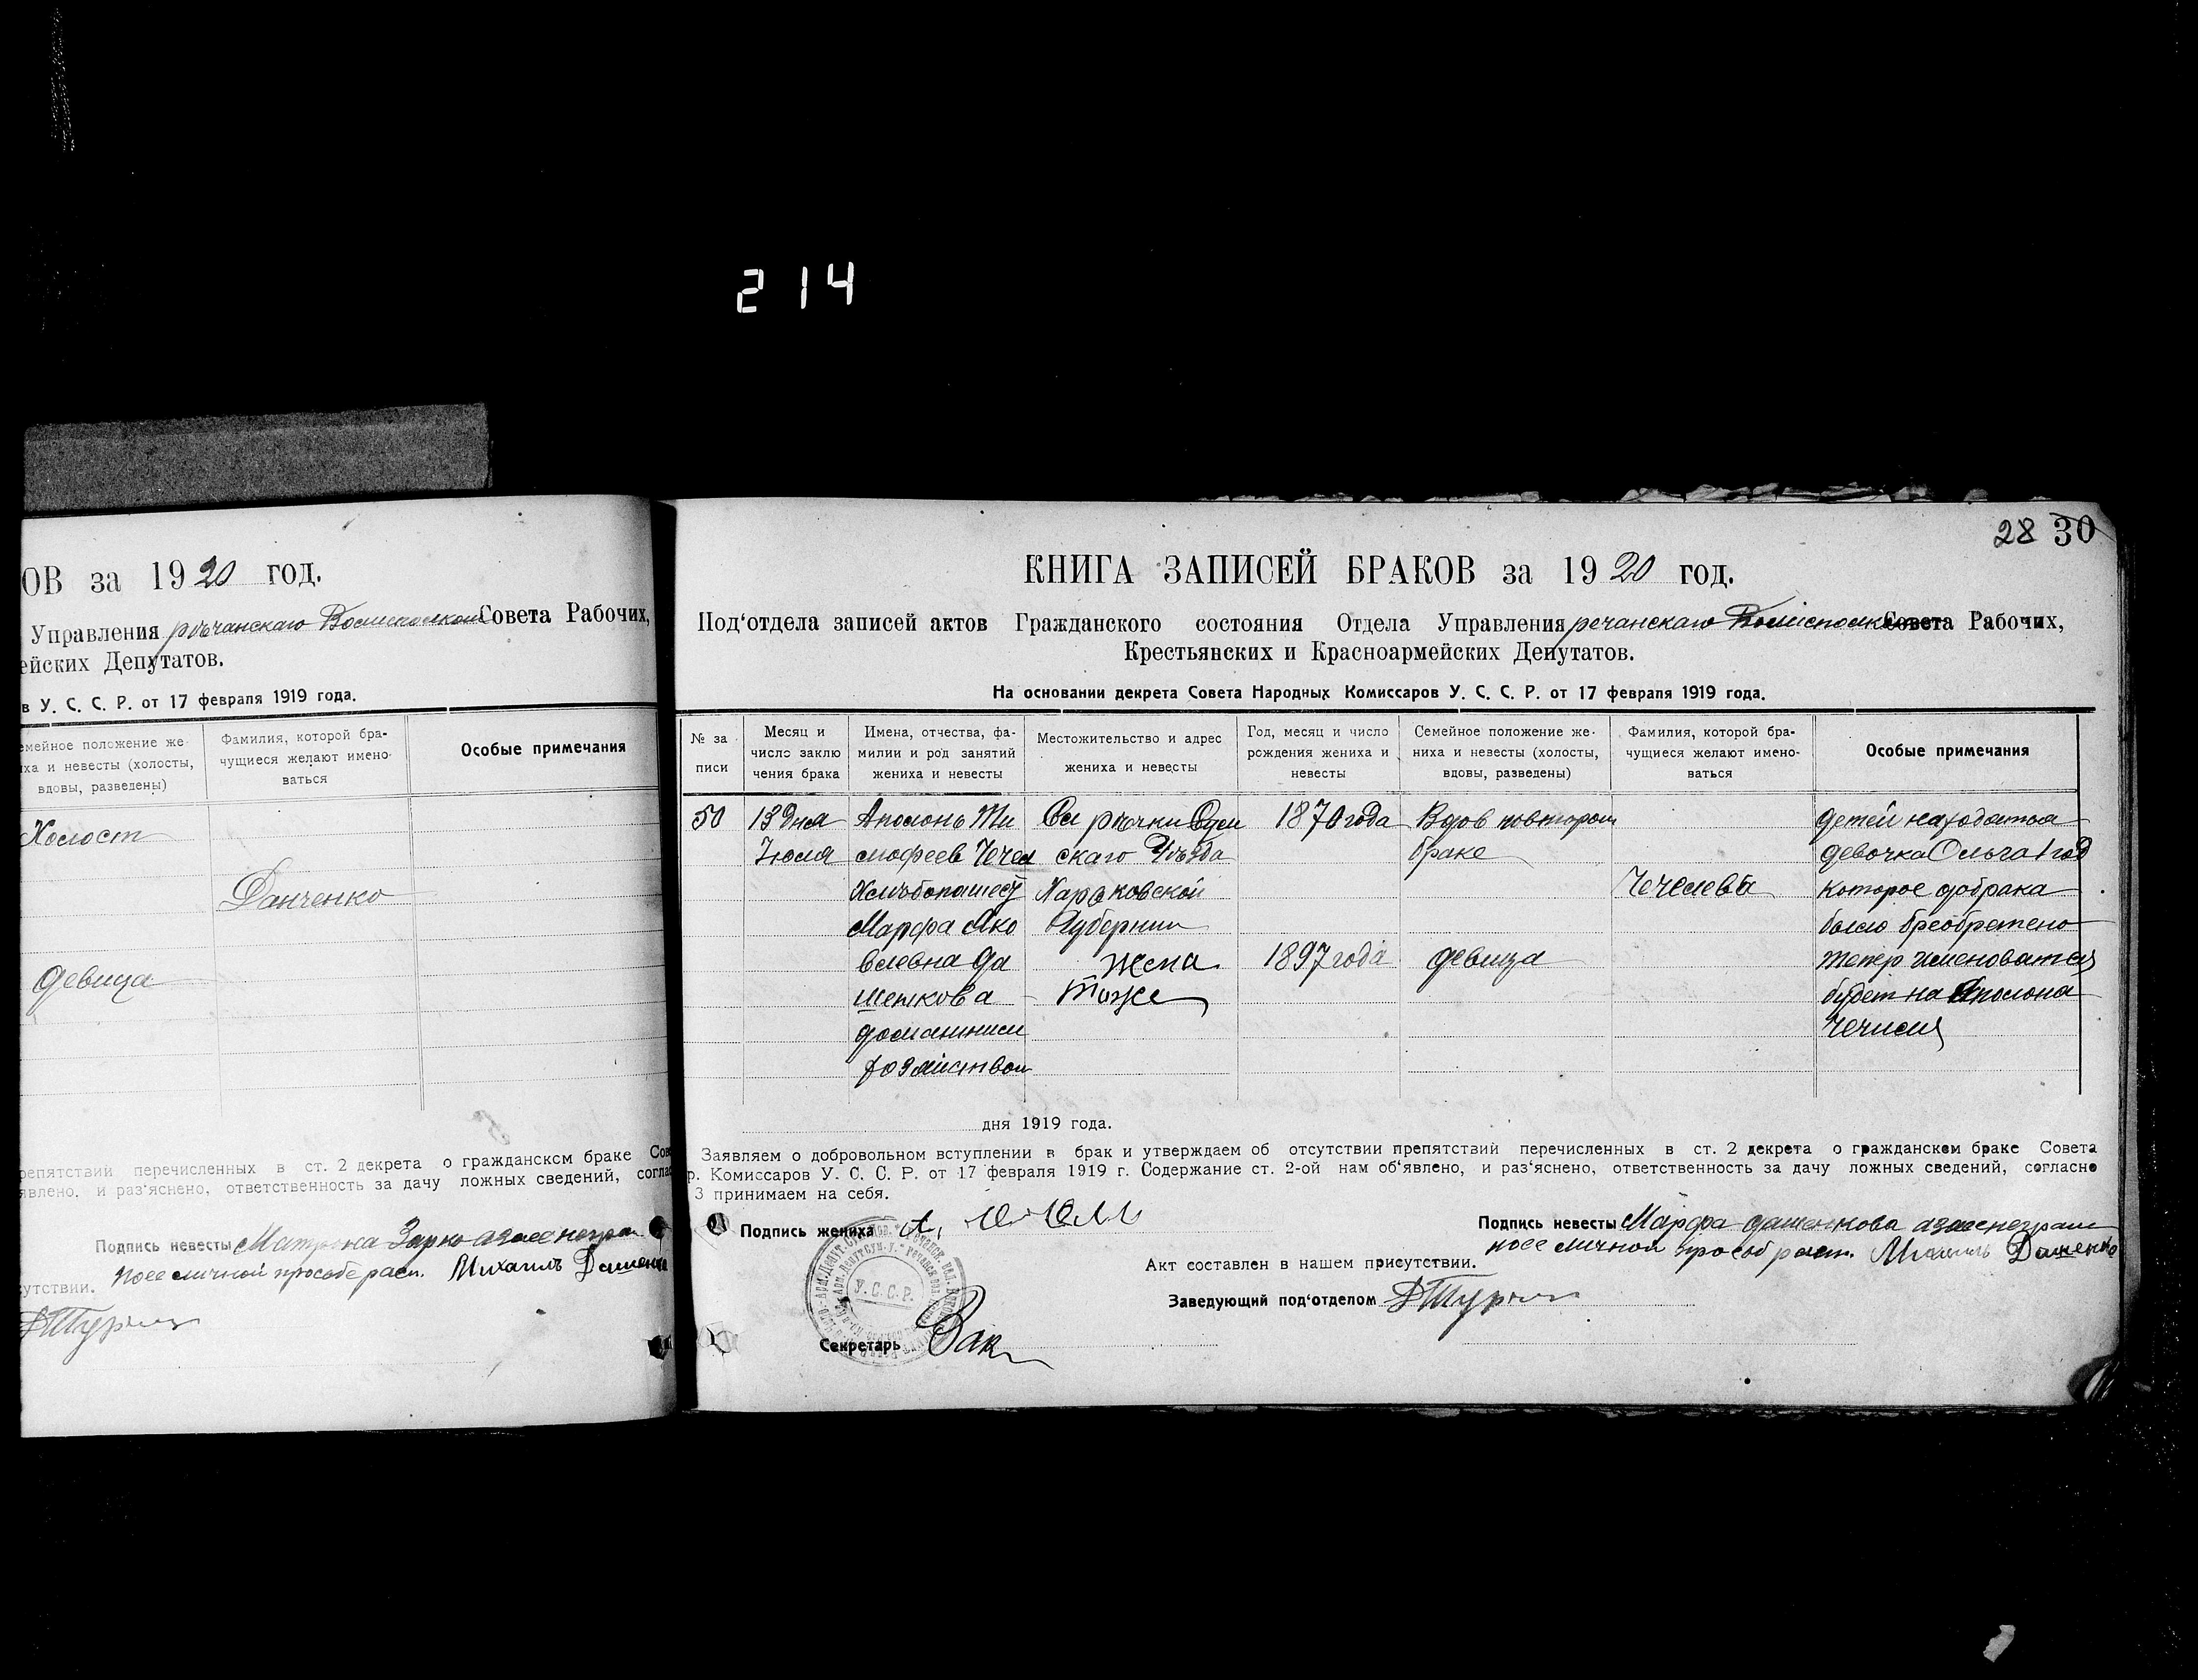 214
ОВ за 1920 год.
Управления рѣчанскаго Совета Рабочих,
ейских Депутатов.
в У. С. С. Р. от 17 февраля 1919 года.
емейное положение же-
иха и невесты (холосты,
вдовы, разведены)
Фамилия, которой бра-
чущиеся желают имено-
ваться
Особые примечания
Холост
Данченко
девица
репятствий перечисленных в ст. 2 декрета о гражданском браке Сове
явлено, и раз'яснено, ответственность за дачу ложных сведений, соглас
Подпись невесты Матрона Зарко азаее негра
поее личной прособе расп. Михаилъ Дашенко
сутствии.
28 30
КНИГА ЗАПИСЕЙ БРАКОВ за 1920 год.
Под'отдела записей актов Гражданского состояния Отдела Управления речанскаго Совета Рабочих,
Крестьянских и Красноармейских Депутатов.
На основании декрета Совета Народных Комиссаров У. С. С. Р. от 17 февраля 1919 года.
№ за
писи
Месяц и
число заклю
чения брака
Имена, отчества, фа-
милии и род занятий
жениха и невесты
Местожительство и адрес
жениха и невесты
Год, месяц и число
рождения жениха и
невесты
Семейное положение же-
ниха и невесты (холосты,
вдовы, разведены)
Фамилия, которой бра-
чущиеся желают имено-
ваться
Особые примечания
50
13 дня
Июля
Аполонъ Ти
мофеев Чечел
Хлѣбопашец
Марфа Яко
влевна Да
шенкова
домашним
хозяйством
Сел рѣчки Сум
скаго Уѣзда
Харьковской
Губернии
жена
тоже
1870 года
1897 года
Вдов повтором
браке
девица
Чечелева
детей находится
девочка Ольга 1 год
которое добрака
было бреобретено
тепер именоватся
будет на Аполона
Чечиля
дня 1919 года.
Заявляем о добровольном вступлении в брак и утверждаем об отсутствии препятствий перечисленных в ст. 2 декрета о гражданском браке Совета
р. Комиссаров У. С. С. Р. от 17 февраля 1919 г. Содержание ст. 2-ой нам об'явлено, и раз'яснено, ответственность за дачу ложных сведений, согласно
3 принимаем на себя.
Подпись жениха
Подпись невесты Марфа дашенкова азаее неграм
поее личной прособ расп. Михаилъ Дашенко
Акт составлен в нашем присутствии.
Заведующий под'отделом
У. С. С. Р.
Секретарь